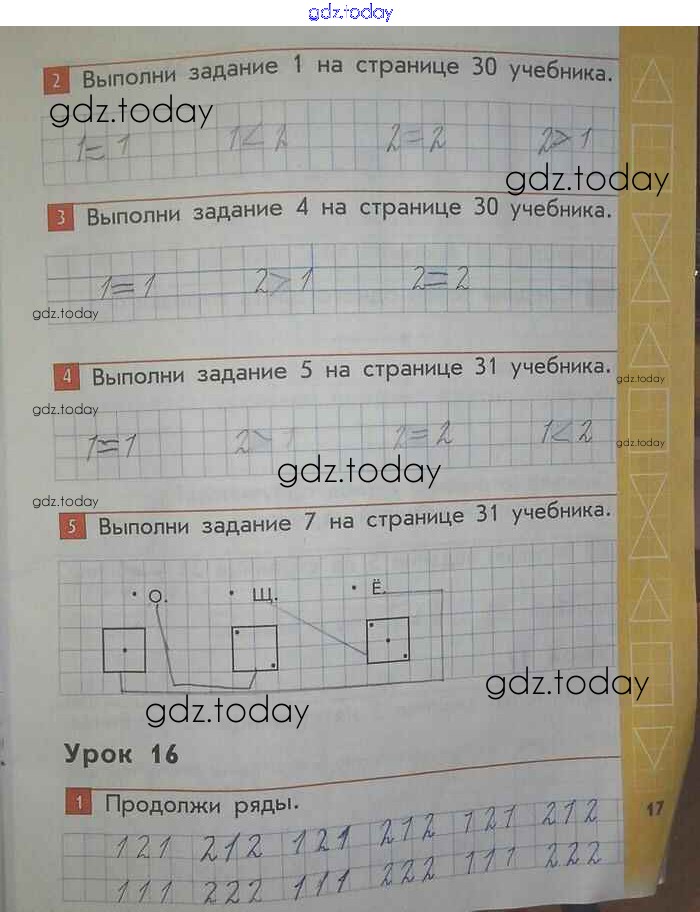 gdz.today
2 Выполни задание 1 на странице 30 учебника.
gdz.today
1=1 1<2 2=2 2>1
gdz.today
3 Выполни задание 4 на странице 30 учебника.
1=1 2>1 2=2
gdz.today
4 Выполни задание 5 на странице 31 учебника.
gdz.today
gdz.today
1=1 2>1 2=2 1<2
gdz.today
gdz.today
gdz.today
5 Выполни задание 7 на странице 31 учебника.
• О. • Щ. • Ё.
gdz.today
gdz.today
Урок 16
1 Продолжи ряды.
17
121 212 121 212 121 212
111 222 111 222 111 222